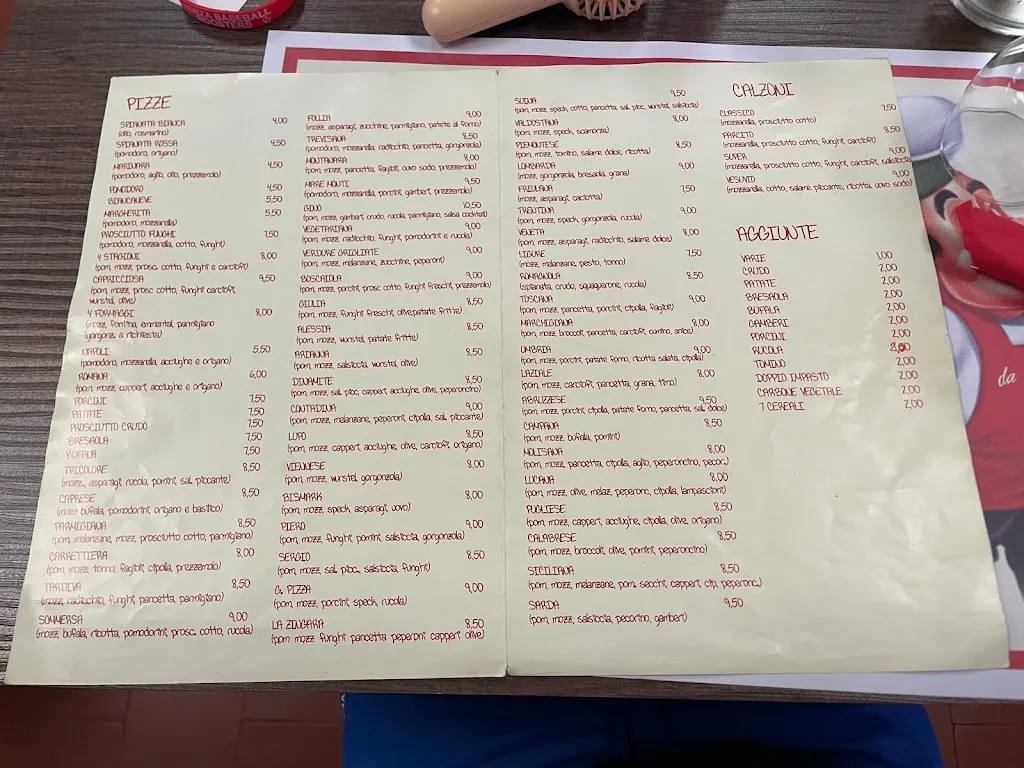 BASEBALL
BOOSTERS
PIZZE
SPIANATA BIANCA 4,00
(olio, rosmarino)
SPIANATA ROSSA 4,50
(pomodoro, origano)
MARINARA 4,50
(pomodoro, aglio, olio, prezzemolo)
POMODORO 4,50
BIANCANEVE 5,50
MARGHERITA 5,50
(pomodoro, mozzarella)
PROSCIUTTO FUNGHI 7,50
(pomodoro, mozzarella, cotto, funghi)
4 STAGIONI 8,00
(pom, mozz, prosc. cotto, funghi e carciofi)
CAPRICCIOSA 9,50
(pom, mozz, prosc cotto, funghi carciofi,
wurstel, olive)
4 FORMAGGI 8,00
(mozz, fontina, emmental, parmigiano
(gorgonz. a richiesta)
NAPOLI 5,50
(pomodoro, mozzarella, acciughe e origano)
ROMANA 6,00
(pom, mozz, capperi, acciughe e origano)
PORCINI 7,50
PATATE 7,50
PROSCIUTTO CRUDO 7,50
BRESAOLA 7,50
BUFALA 7,50
TRICOLORE 8,50
(mozz, asparagi, rucola, pomini, sal. piccante)
CAPRESE 8,50
(mozz bufala, pomodorini origano e basilico)
PARMIGIANA 8,50
(pom, melanzane, mozz, prosciutto cotto, parmigiano)
CARRETTIERA 8,00
(pom, mozz, tonno, fagioli, cipolla, prezzemolo)
TARDIVA 8,50
(mozz, radicchio, funghi, pancetta, parmigiano)
SOMMERSA 9,00
(mozz, bufala, ricotta, pomodorini, prosc. cotto, rucola)
FOLLIA 9,00
(mozz, asparagi, zucchine, parmigiano, patate al forno)
TREVISANA 8,50
(pomodoro, mozzarella, radicchio, pancetta, gorgonzola)
MONTANARA 8,00
(pom, mozz, pancetta, fagioli, uovo sodo, prezzemolo)
MARE MONTI 9,50
(pomodoro, mozzarella, porcini, gamberi, prezzemolo)
GINO 10,50
(pom, mozz, gamberi, crudo, rucola, parmigiano, salsa cocktail)
VEGETARIANA 9,00
(pom, mozz, radicchio, funghi, pomodorini e rucola)
VERDURE GRIGLIATE 9,00
(pom, mozz, melanzane, zucchine, peperoni)
BOSCAIOLA 9,00
(pom, mozz, porcini, prosc cotto, funghi freschi, prezzemolo)
GIULIA 8,50
(pom, mozz, funghi freschi, olive,patate fritte)
ALESSIA 8,50
(pom, mozz, wurstel, patate fritte)
ARIANNA 8,50
(pom, mozz, salsiccia, wurstel, olive)
DINAMITE 8,50
(pom, mozz, sal. picc, capperi, acciughe, olive, peperoncino)
CONTADINA 9,00
(pom, mozz, melanzane, peperoni, cipolla, sal. piccante)
LUPO 8,50
(pom, mozz, capperi, acciughe, olive, carciofi, origano)
VIENNESE 8,00
(pom, mozz, wurstel, gorgonzola)
BISMARK 8,00
(pom, mozz, speck, asparagi, uovo)
PIERO 9,00
(pom, mozz, funghi, pomini, salsiccia, gorgonzola)
SERGIO 8,50
(pom, mozz, sal. picc., salsiccia, funghi)
G. PIZZA 9,00
(pom, mozz, porcini, speck, rucola)
LA ZINGARA 8,50
(pom mozz funghi pancetta peperoni capperi olive)
SUINA 9,50
(pom, mozz, speck, cotto, pancetta, sal. picc, wurstel, salsiccia)
VALDOSTANA 8,00
(pom, mozz, speck, scamorza)
PIEMONTESE 8,50
(pom, mozz, tomino, salame dolce, ricotta)
LOMBARDA 9,00
(mozz, gorgonzola, bresaola, grana)
FRIULANA 7,50
(mozz, asparagi, caciotta)
TRENTINA 9,00
(pom, mozz, speck, gorgonzola, rucola)
VENETA 8,00
(pom, mozz, asparagi, radicchio, salame dolce)
LIGURE 7,50
(mozz, melanzane, pesto, tonno)
ROMAGNOLA 8,50
(spianata, crudo, squaquerone, rucola)
TOSCANA 9,00
(pom, mozz, pancetta, porcini, cipolla, fagioli)
MARCHIGIANA 8,00
(pom, mozz, broccoli, pancetta, carciofi, cumino, anice)
UMBRIA 9,00
(pom, mozz, porcini, patate forno, ricotta salata, cipolla)
LAZIALE 8,00
(pom, mozz, carciofi, pancetta, grana, timo)
ABRUZZESE 9,50
(pom, mozz, porcini, cipolla, patate forno, pancetta, sal. dolce)
CAMPANA 8,50
(pom, mozz, bufala, pomini)
MOLISANA 8,00
(pom, mozz, pancetta, cipolla, aglio, peperoncino, pecor.)
LUCANA 8,00
(pom, mozz, olive, melaz, peperonc, cipolla, lampascioni)
PUGLIESE 8,50
(pom, mozz, capperi, acciughe, cipolla, olive, origano)
CALABRESE 8,50
(pom, mozz, broccoli, olive, pomini, peperoncino)
SICILIANA 8,50
(pom, mozz, melanzane, pom. secchi, capperi, cip, peperonc.)
SARDA 9,50
(pom, mozz, salsiccia, pecorino, gamberi)
CALZONI
CLASSICO 7,50
(mozzarella, prosciutto cotto)
FARCITO 8,50
(mozzarella, prosciutto cotto, funghi, carciofi)
SUPER 9,00
(mozzarella, prosciutto cotto, funghi, carciofi, salsiccia
VESUVIO 9,00
(mozzarella, cotto, salame piccante, ricotta, uovo sodo)
AGGIUNTE
VARIE 1,00
CRUDO 2,00
PATATE 2,00
BRESAOLA 2,00
BUFALA 2,00
GAMBERI 2,00
PORCINI 2,00
RUCOLA
TOMINO 2,00
DOPPIO IMPASTO 2,00
CARBONE VEGETALE 2,00
7 CEREALI 2,00
da